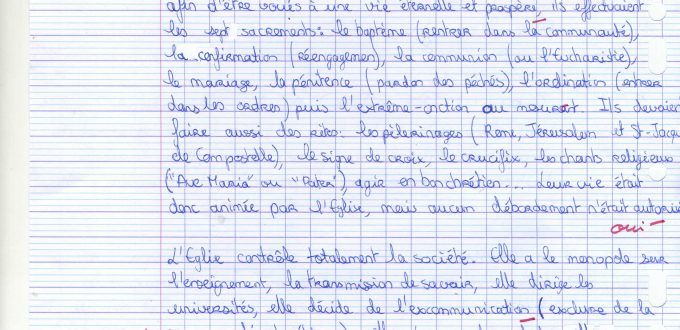 afin d'être voués à une vie éternelle et prospère, ils effectuaient
les sept sacrements : le baptême (rentrer dans la communauté),
la confirmation (réengagement), la communion (ou l'Eucharistie),
le mariage, la pénitence (pardon des péchés), l'ordination (entrer
dans les ordres) puis l'extrême-onction au mourant. Ils devaient
faire aussi des rites : les pèlerinages (Rome, Jérusalem et St-Jacqu
de Compostelle), le signe de croix, le crucifix, les chants religieux
("Ave Maria" ou "Pater"), agir en bon chrétien... Leur vie était
donc animée par l'Eglise, mais aucun débordement n'était autorisé
oui
L'Eglise contrôle totalement la société. Elle a le monopole sur
l'enseignement, la transmission de savoir, elle dirige les
universités, elle décide de l'excommunication (exclure de la